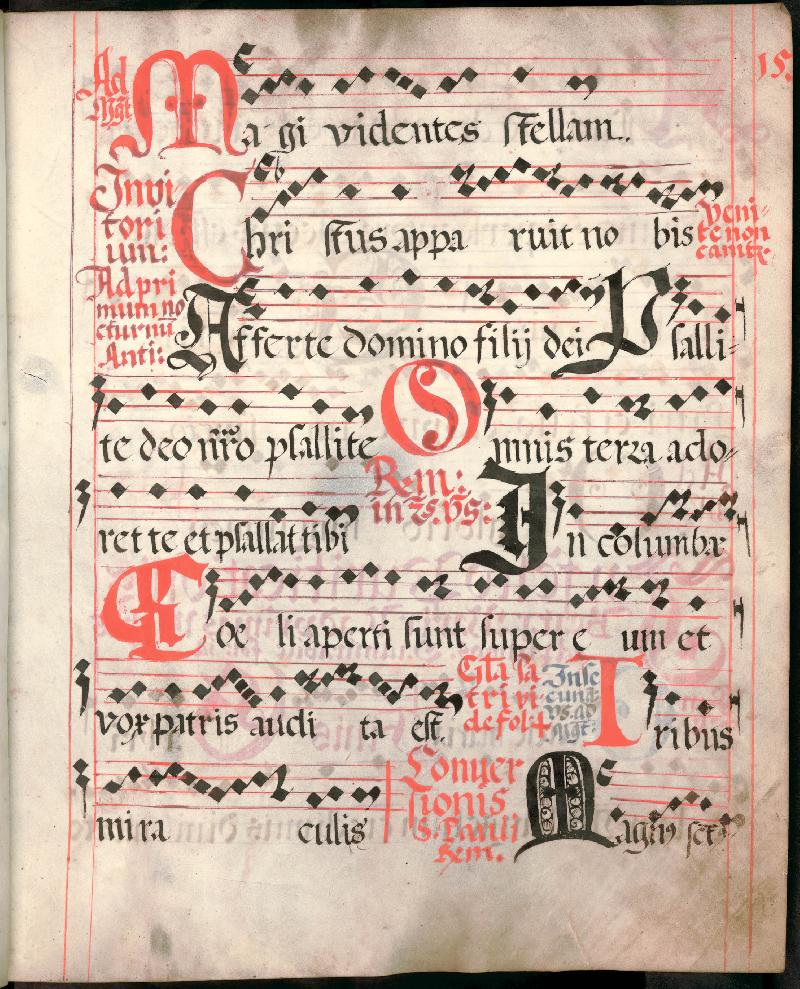 15.
Ad
Mgt
Ma gi videntes stellam.
Invi
tori
um:
Chri stus appa ruit no bis
Veni-
te non
canitr
Ad pri
mum no
cturnū
Anti:
Afferte domino filij dei Psalli-
te deo nr̄o psallite Omnis terra ado-
ret te et psallat tibi
In columbæ
Coe li aperti sunt super e um et
vox patris audi ta est.
Tribus
mira culis
Conver
sionis
S. Pauli
Magn